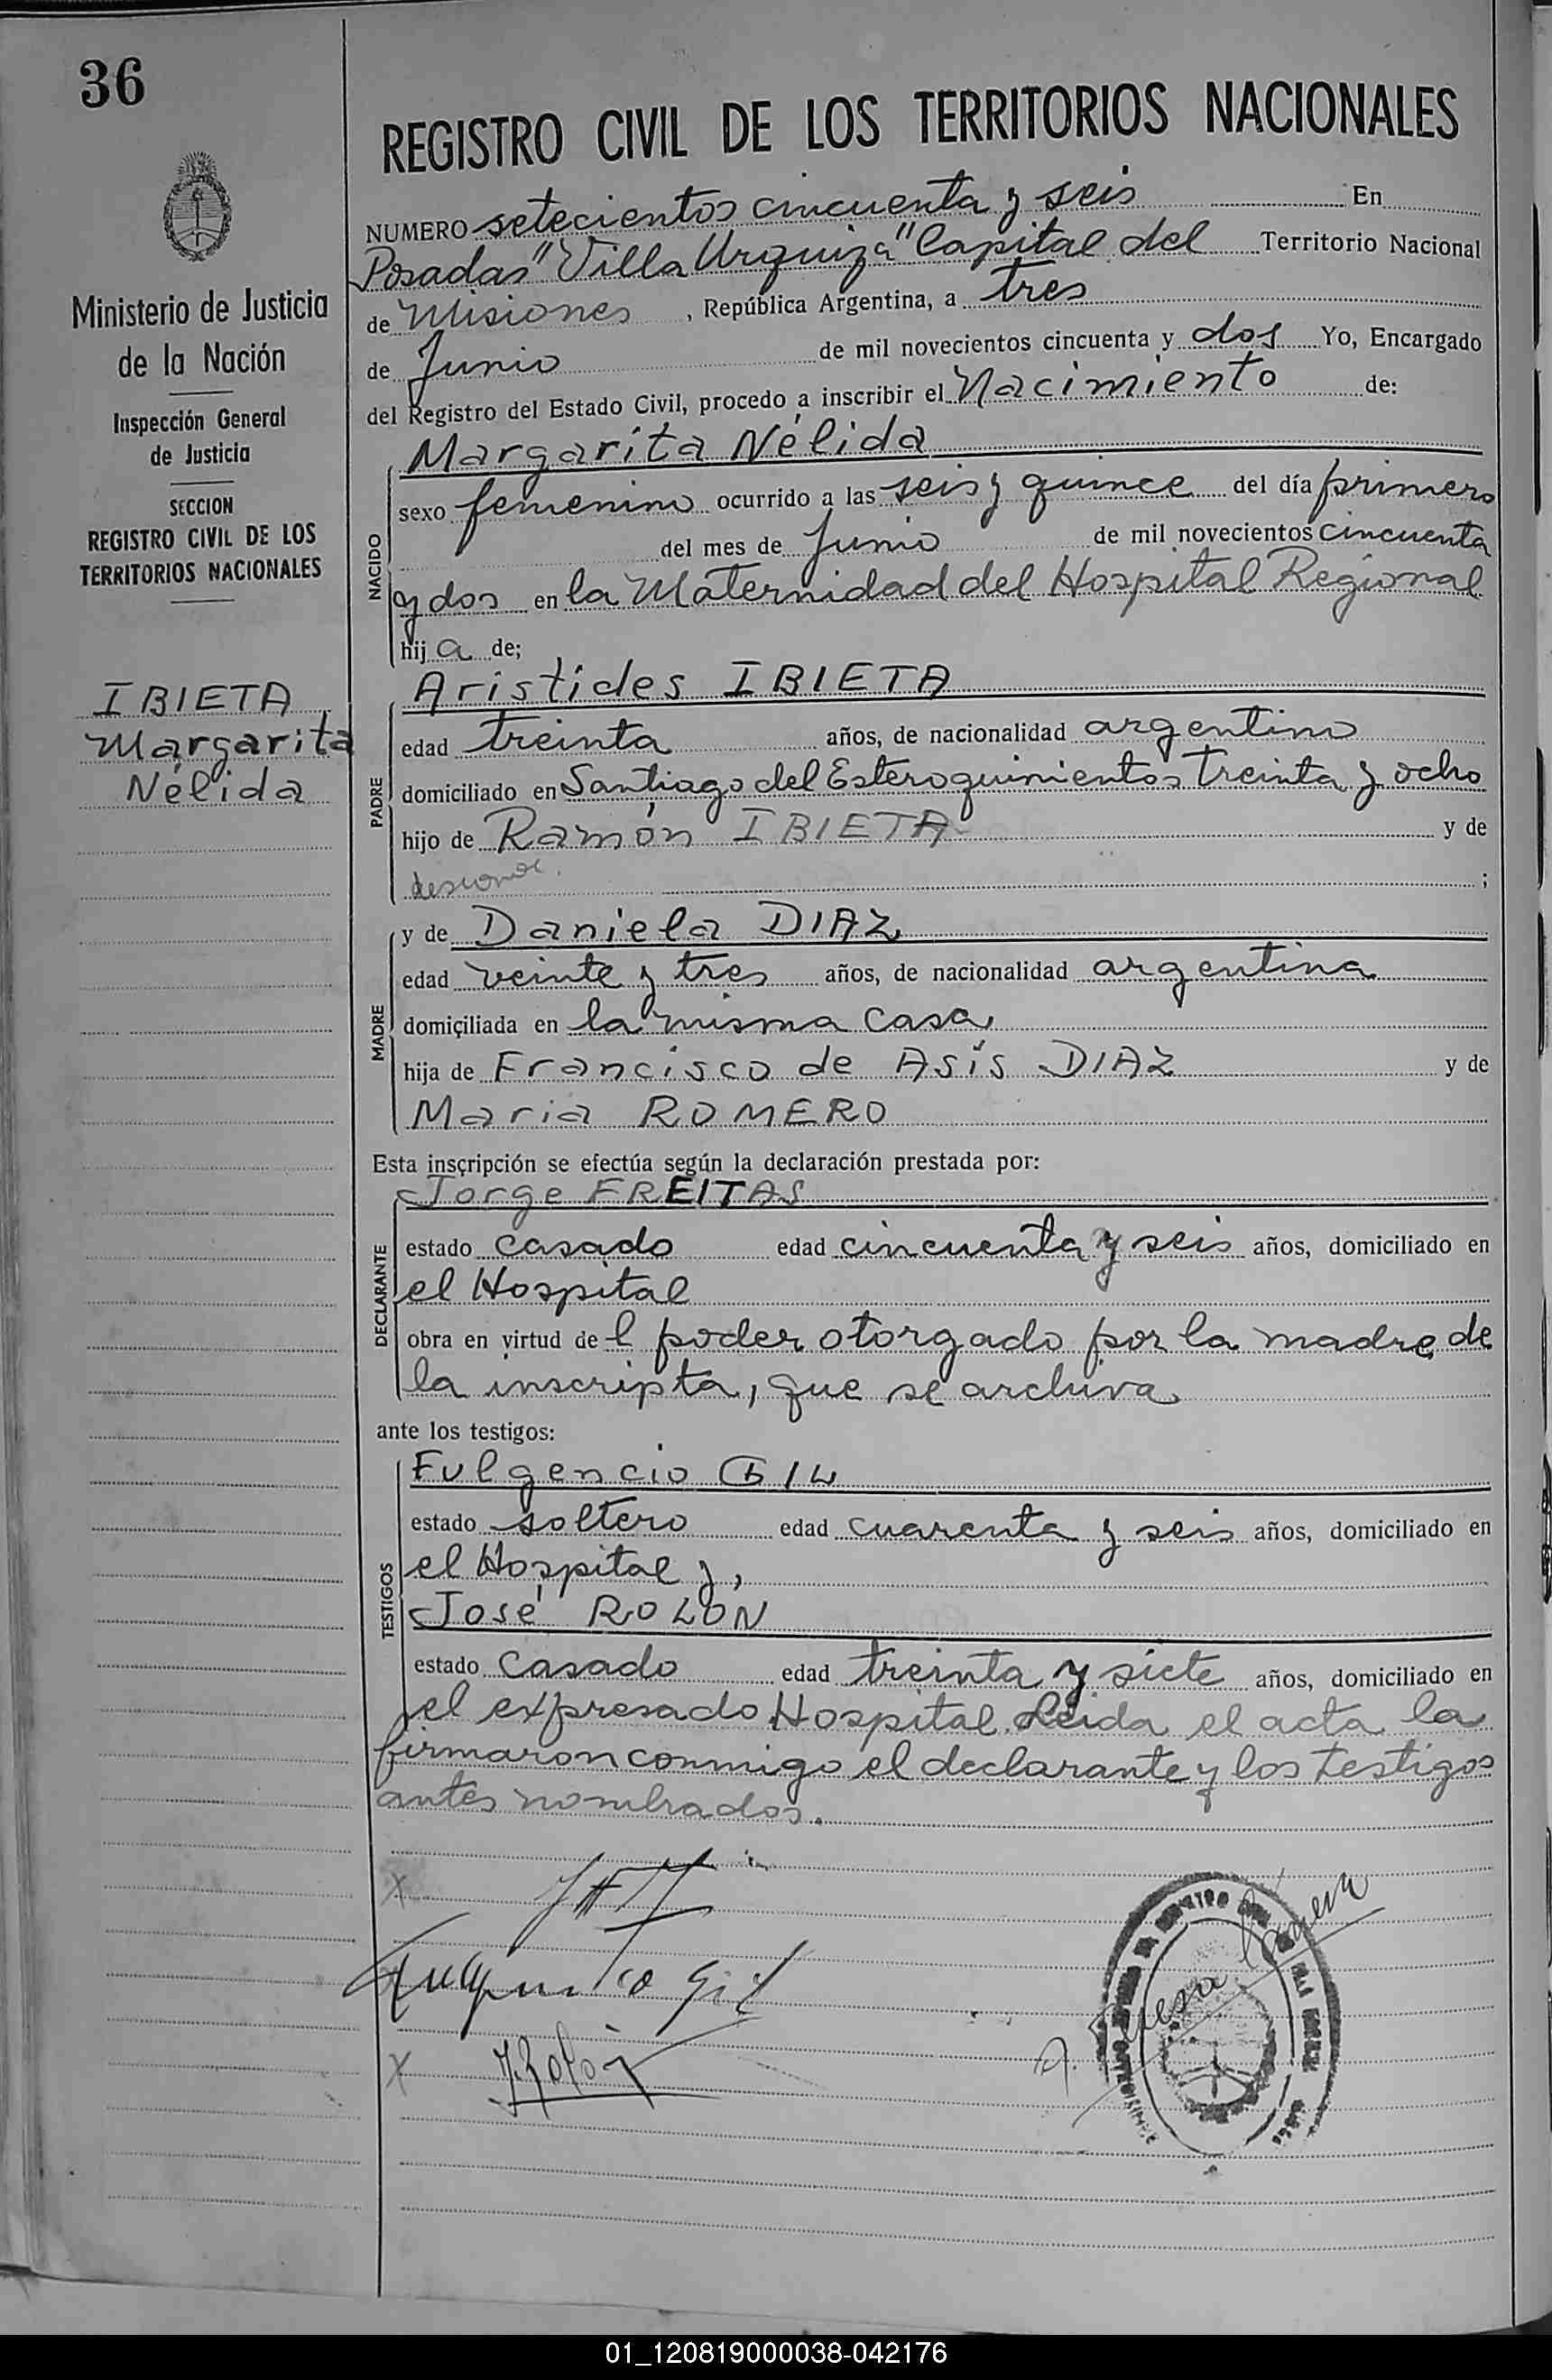 36
REGISTRO CIVIL DE LOS TERRITORIOS NACIONALES
NUMERO setecientos cincuenta y seis En
Posadas "Villa Urquiza" Capital del Territorio Nacional
de Misiones, República Argentina, a tres
de Junio de mil novecientos cincuenta y dos Yo, Encargado
del Registro del Estado Civil, procedo a inscribir el Nacimiento de:
Ministerio de Justicia
de la Nación
Inspección General
de Justicia
SECCION
REGISTRO CIVIL DE LOS
TERRITORIOS NACIONALES
IBIETA
Margarita
Nélida
NACIDO
Margarita Nélida
sexo femenino ocurrido a las seis y quince del día primero
del mes de Junio de mil novecientos cincuenta
y dos en la Maternidad del Hospital Regional
hija de;
PADRE
Aristides IBIETA
edad treinta años, de nacionalidad argentino
domiciliado en Santiago del Estero quinientos treinta y ocho
hijo de Ramón IBIETA y de
;
MADRE
y de Daniela DIAZ
edad veinte y tres años, de nacionalidad argentina
domiciliada en la misma casa,
hija de Francisco de Asís DIAZ y de
Maria ROMERO
Esta inscripción se efectúa según la declaración prestada por:
DECLARANTE
Jorge FREITAS
estado casado edad cincuenta y seis años, domiciliado en
el Hospital
obra en virtud de l poder otorgado por la madre de
la inscripta, que se archiva
ante los testigos:
TESTIGOS
Fulgencio GIL
estado soltero edad cuarenta y seis años, domiciliado en
el Hospital y,
José ROLON
estado casado edad treinta y siete años, domiciliado en
el expresado Hospital. Leida el acta la
firmaron conmigo el declarante y los testigos
antes nombrados.
x
Gil
x J. Rolón
01_120819000038-042176